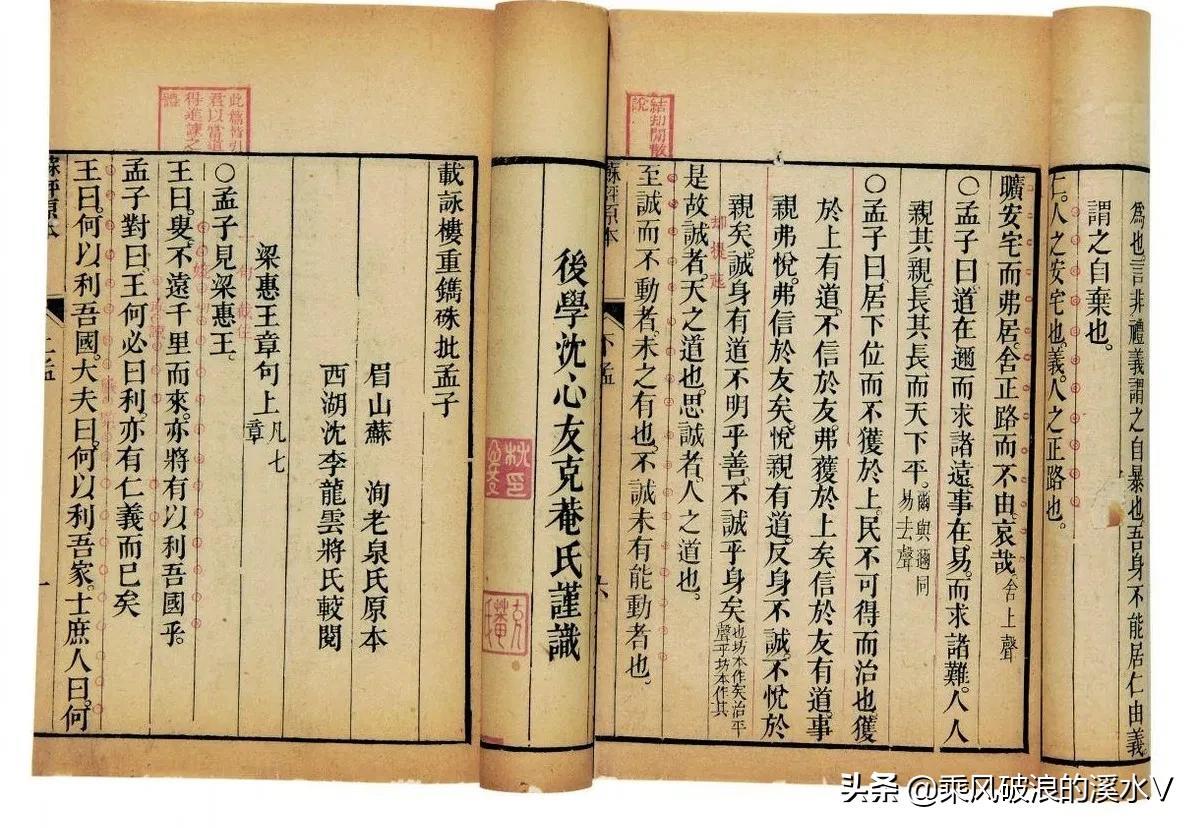 為也言非禮義謂之自暴也吾身不能居仁由義
謂之自棄也。
仁。人之安宅也。義。人之正路也。
曠安宅而弗居。舍正路而不由。哀哉。舍上聲
○孟子曰。道在邇而求諸遠。事在易。而求諸難。人人
親其親。長其長。而天下平。爾與邇同
易去聲
○孟子曰。居下位而不獲於上。民不可得而治也。獲
於上有道。不信於友。弗獲於上矣。信於友有道。事
親弗悅。弗信於友矣。悅親有道。反身不誠。不悅於
親矣。誠身有道。不明乎善。不誠乎身矣。
也坊本作矣治平
聲乎坊本作其
是故誠者。天之道也。思誠者。人之道也。
至誠而不動者。未之有也。不誠未有能動者也。
結却閒散
說
却提起
蘇評原本
下孟
後學沈心友克菴氏謹識
載詠樓重鐫硃批孟子
眉山蘇 洵老泉氏原本
西湖沈李龍雲將氏較閱
梁惠王章句上凡七
章
○孟子見梁惠王。
王曰。叟。不遠千里而來。亦將有以利吾國乎。
孟子對曰。王何必曰利。亦有仁義而已矣
王曰。何以利吾國。大夫曰。何以利吾家。士庶人曰。何
此篇皆引
君以當道
得進諫之
體
蘇評原本
上孟
一
头条 @乘风破浪的溪水V